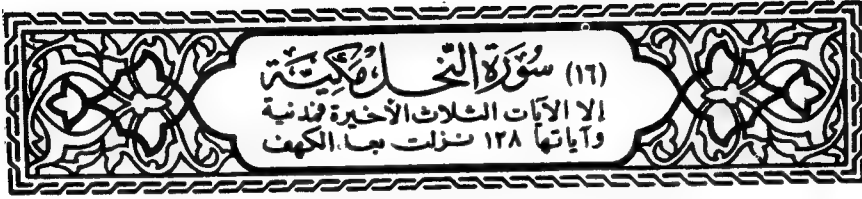 (١٦) سُورَة النَّحْل مَكِّيَّة
إلا الآيات الثلاث الأخيرة فمدنية
وآياتها ١٢٨ نزلت بعد الكهف